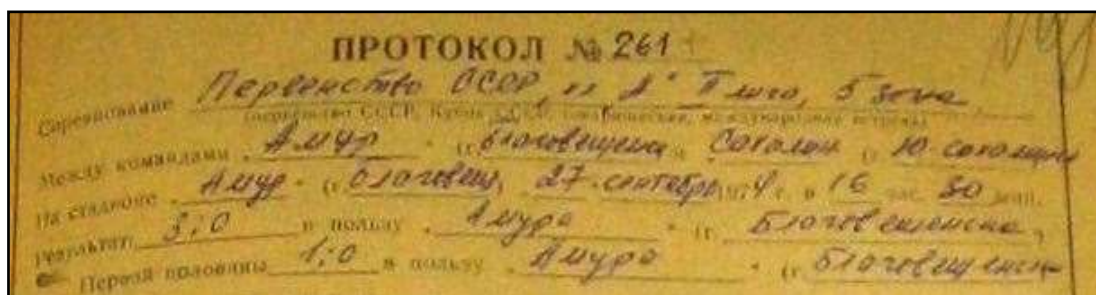 ПРОТОКОЛ № 261
Соревнование Первенство СССР, „А" II лига, 5 зона
(первенство СССР, Кубок СССР, товарищеская, международная встреча)
Между командами „Амур" (г. Благовещенск и Сахалин (г. Ю. Сахалинск
На стадионе „Амур" (г. Благовещ, 27 сентября 1974 г. в 16 час. 30 мин.
результат 3:0 в пользу „Амура" (г. Благовещенска)
Первой половины 1:0 в пользу „Амура" (г. Благовещенск